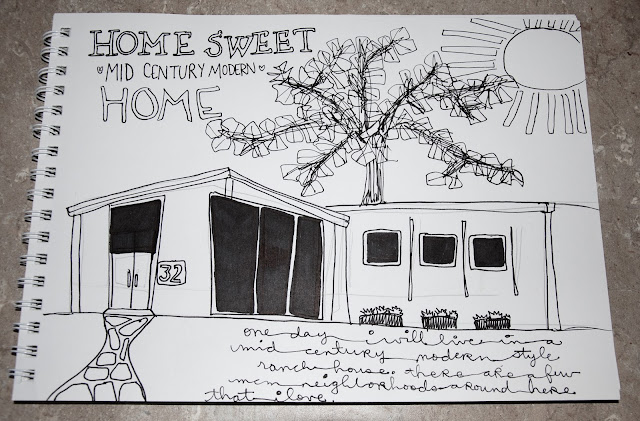 HOME SWEET
MID CENTURY MODERN
HOME
32
one day i will live in a
mid century modern style
ranch house. there are a few
mcm neighborhoods around here
that i love.